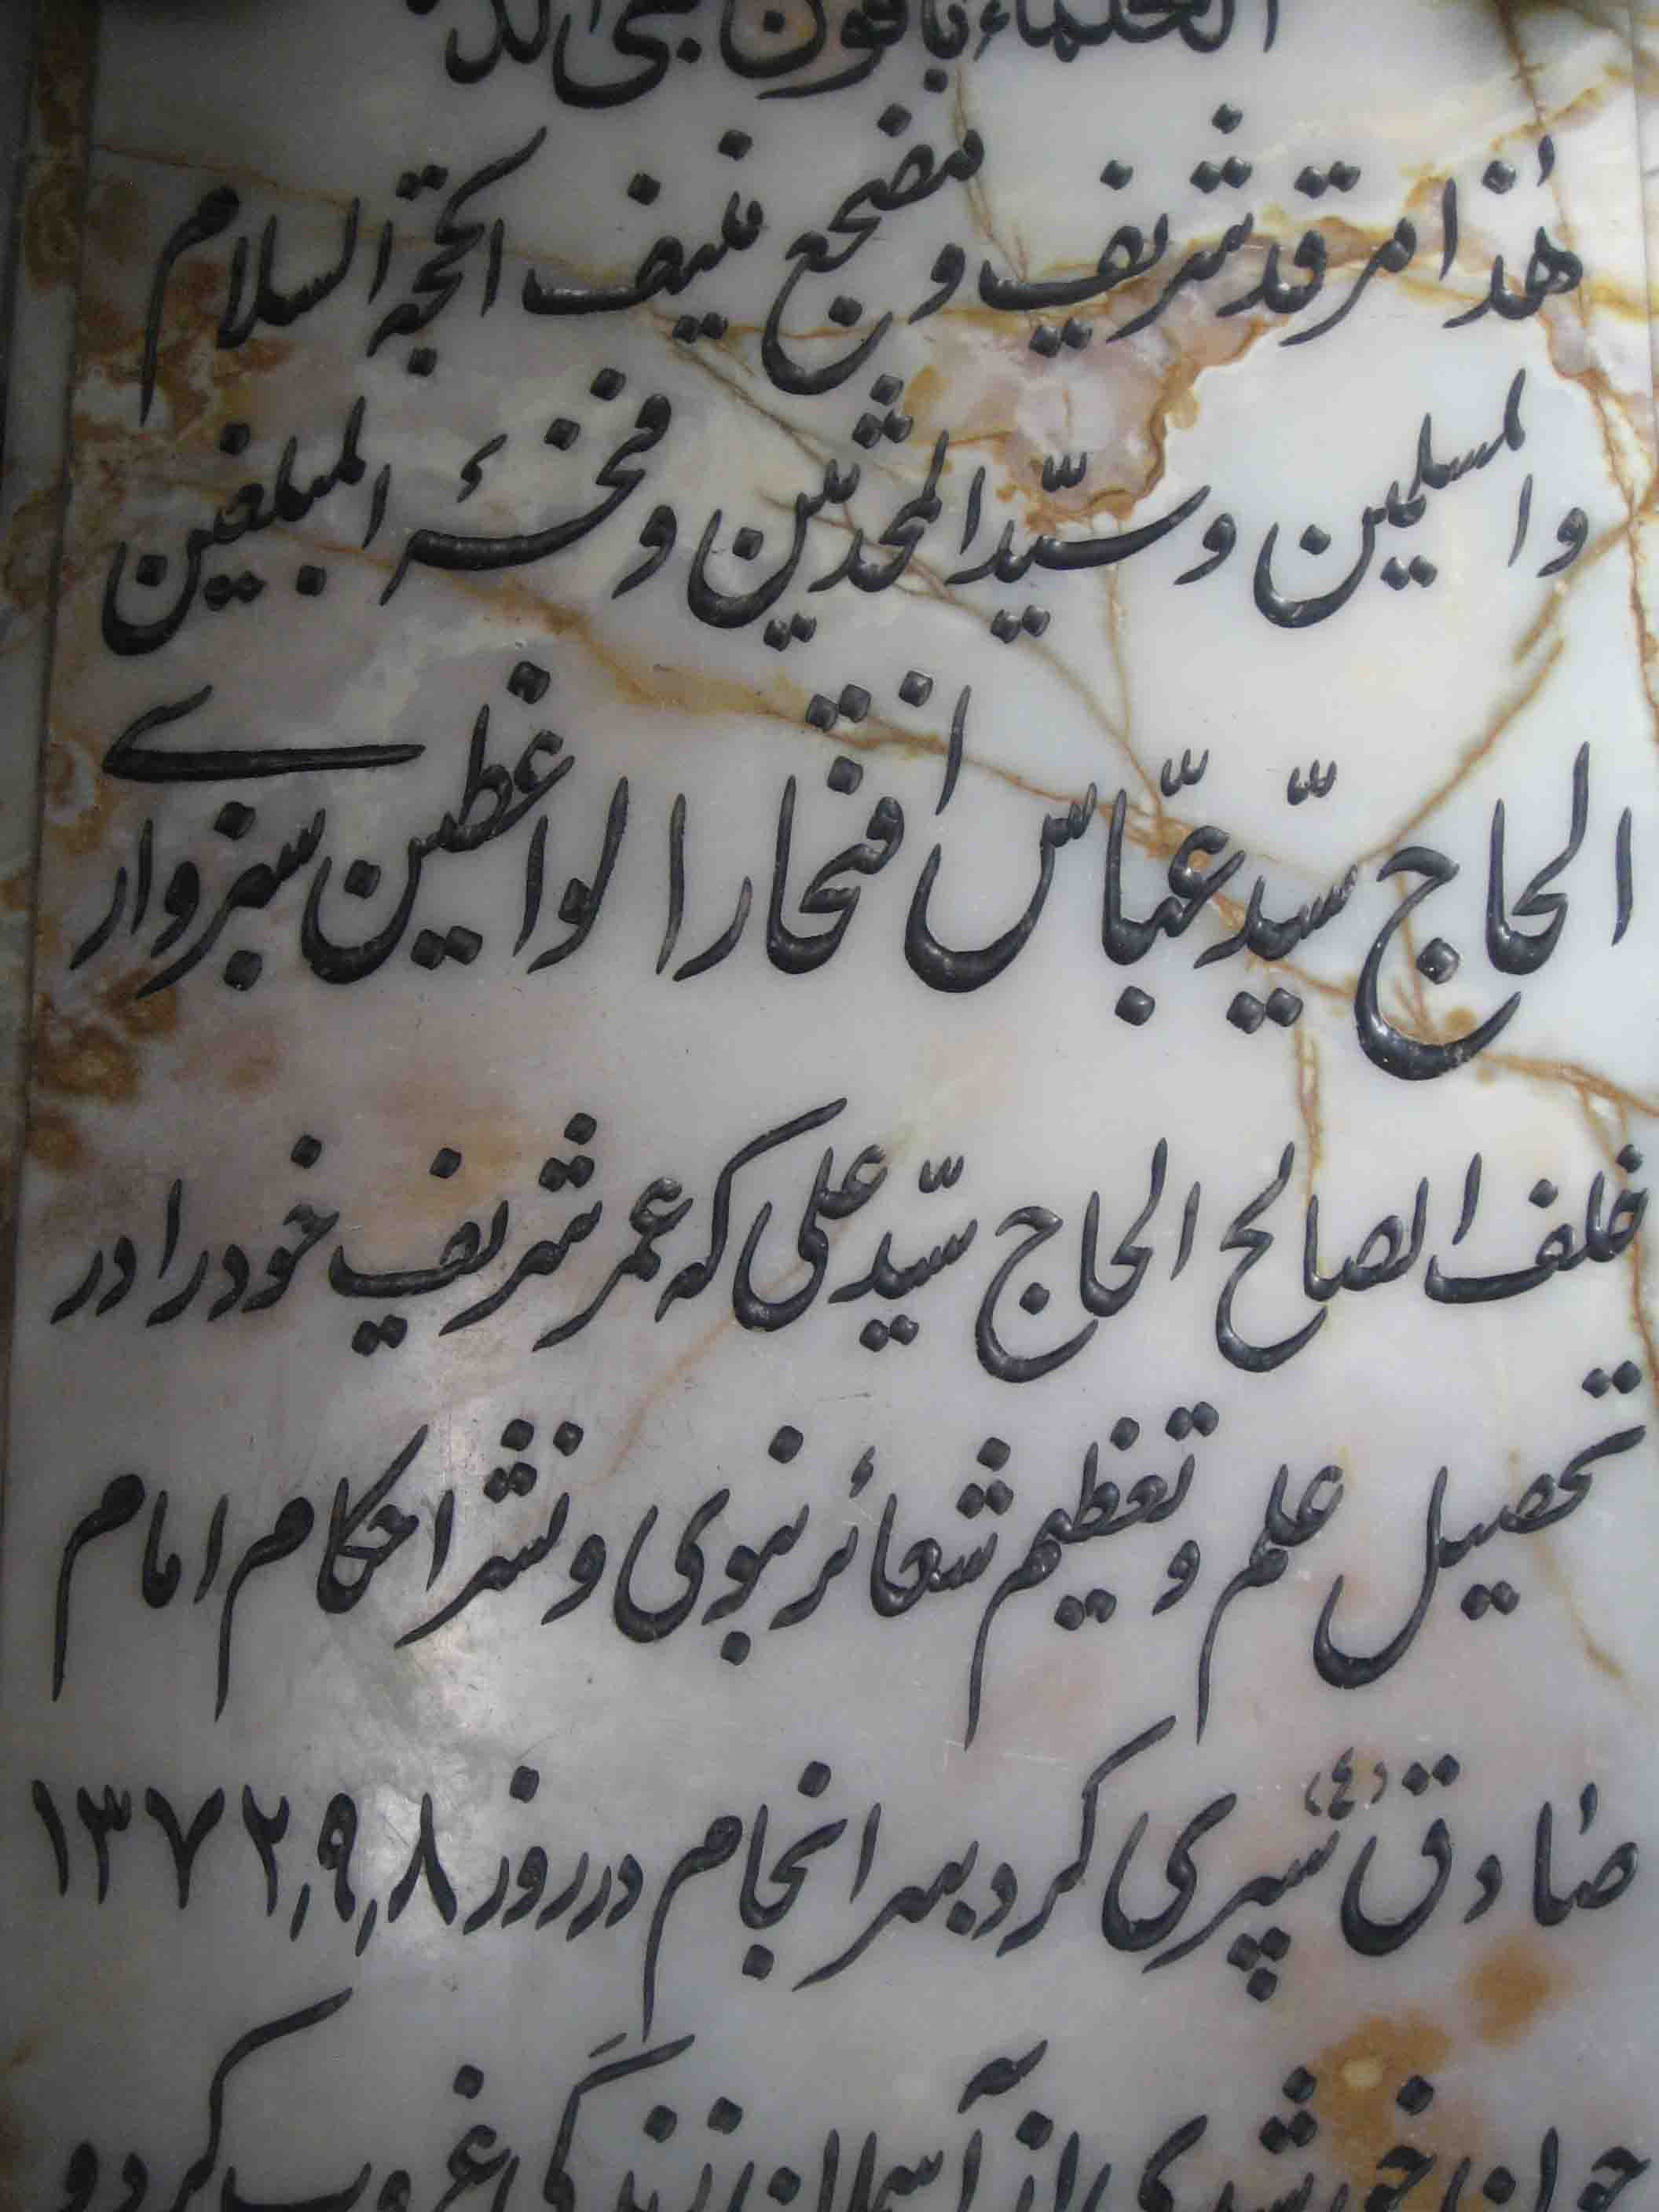 العلماء باقون بقی الد
هٰذا مرقد شریف و مضجع منیف الحجة السلام
والمسلمین و سیّد المحدثین و فخرۀ المبلغین
الحاج سیّد عبّاس افتخار الواعظین سبزواری
خلف الصالح الحاج سیّد علی که عمر شریف خود را در
تحصیل علم و تعظیم شعائر نبوی و نشر احکام امام
صادق (ع) سپری کرد بسرانجام در روز ۱۳۷۲٫۹٫۸
چوان خورشیدی از آسمان زندگی غروب کرد و